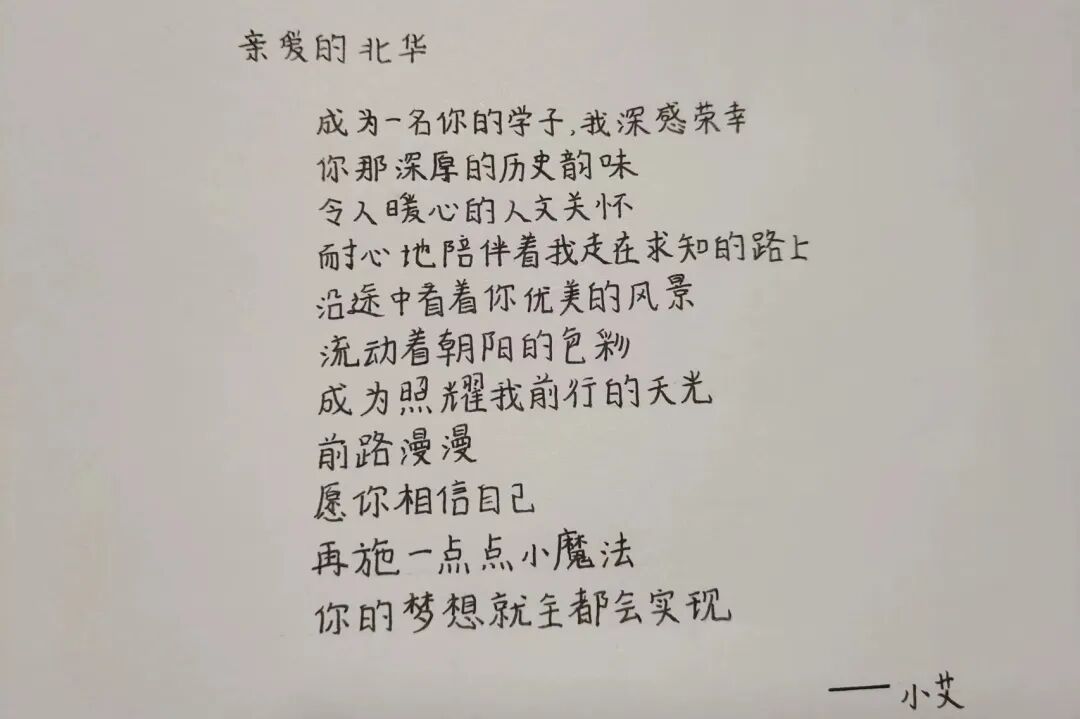 亲爱的北华
成为一名你的学子,我深感荣幸
你那深厚的历史韵味
令人暖心的人文关怀
耐心地陪伴着我走在求知的路上
沿途中看着你优美的风景
流动着朝阳的色彩
成为照耀我前行的天光
前路漫漫
愿你相信自己
再施一点点小魔法
你的梦想就全都会实现
——小艾